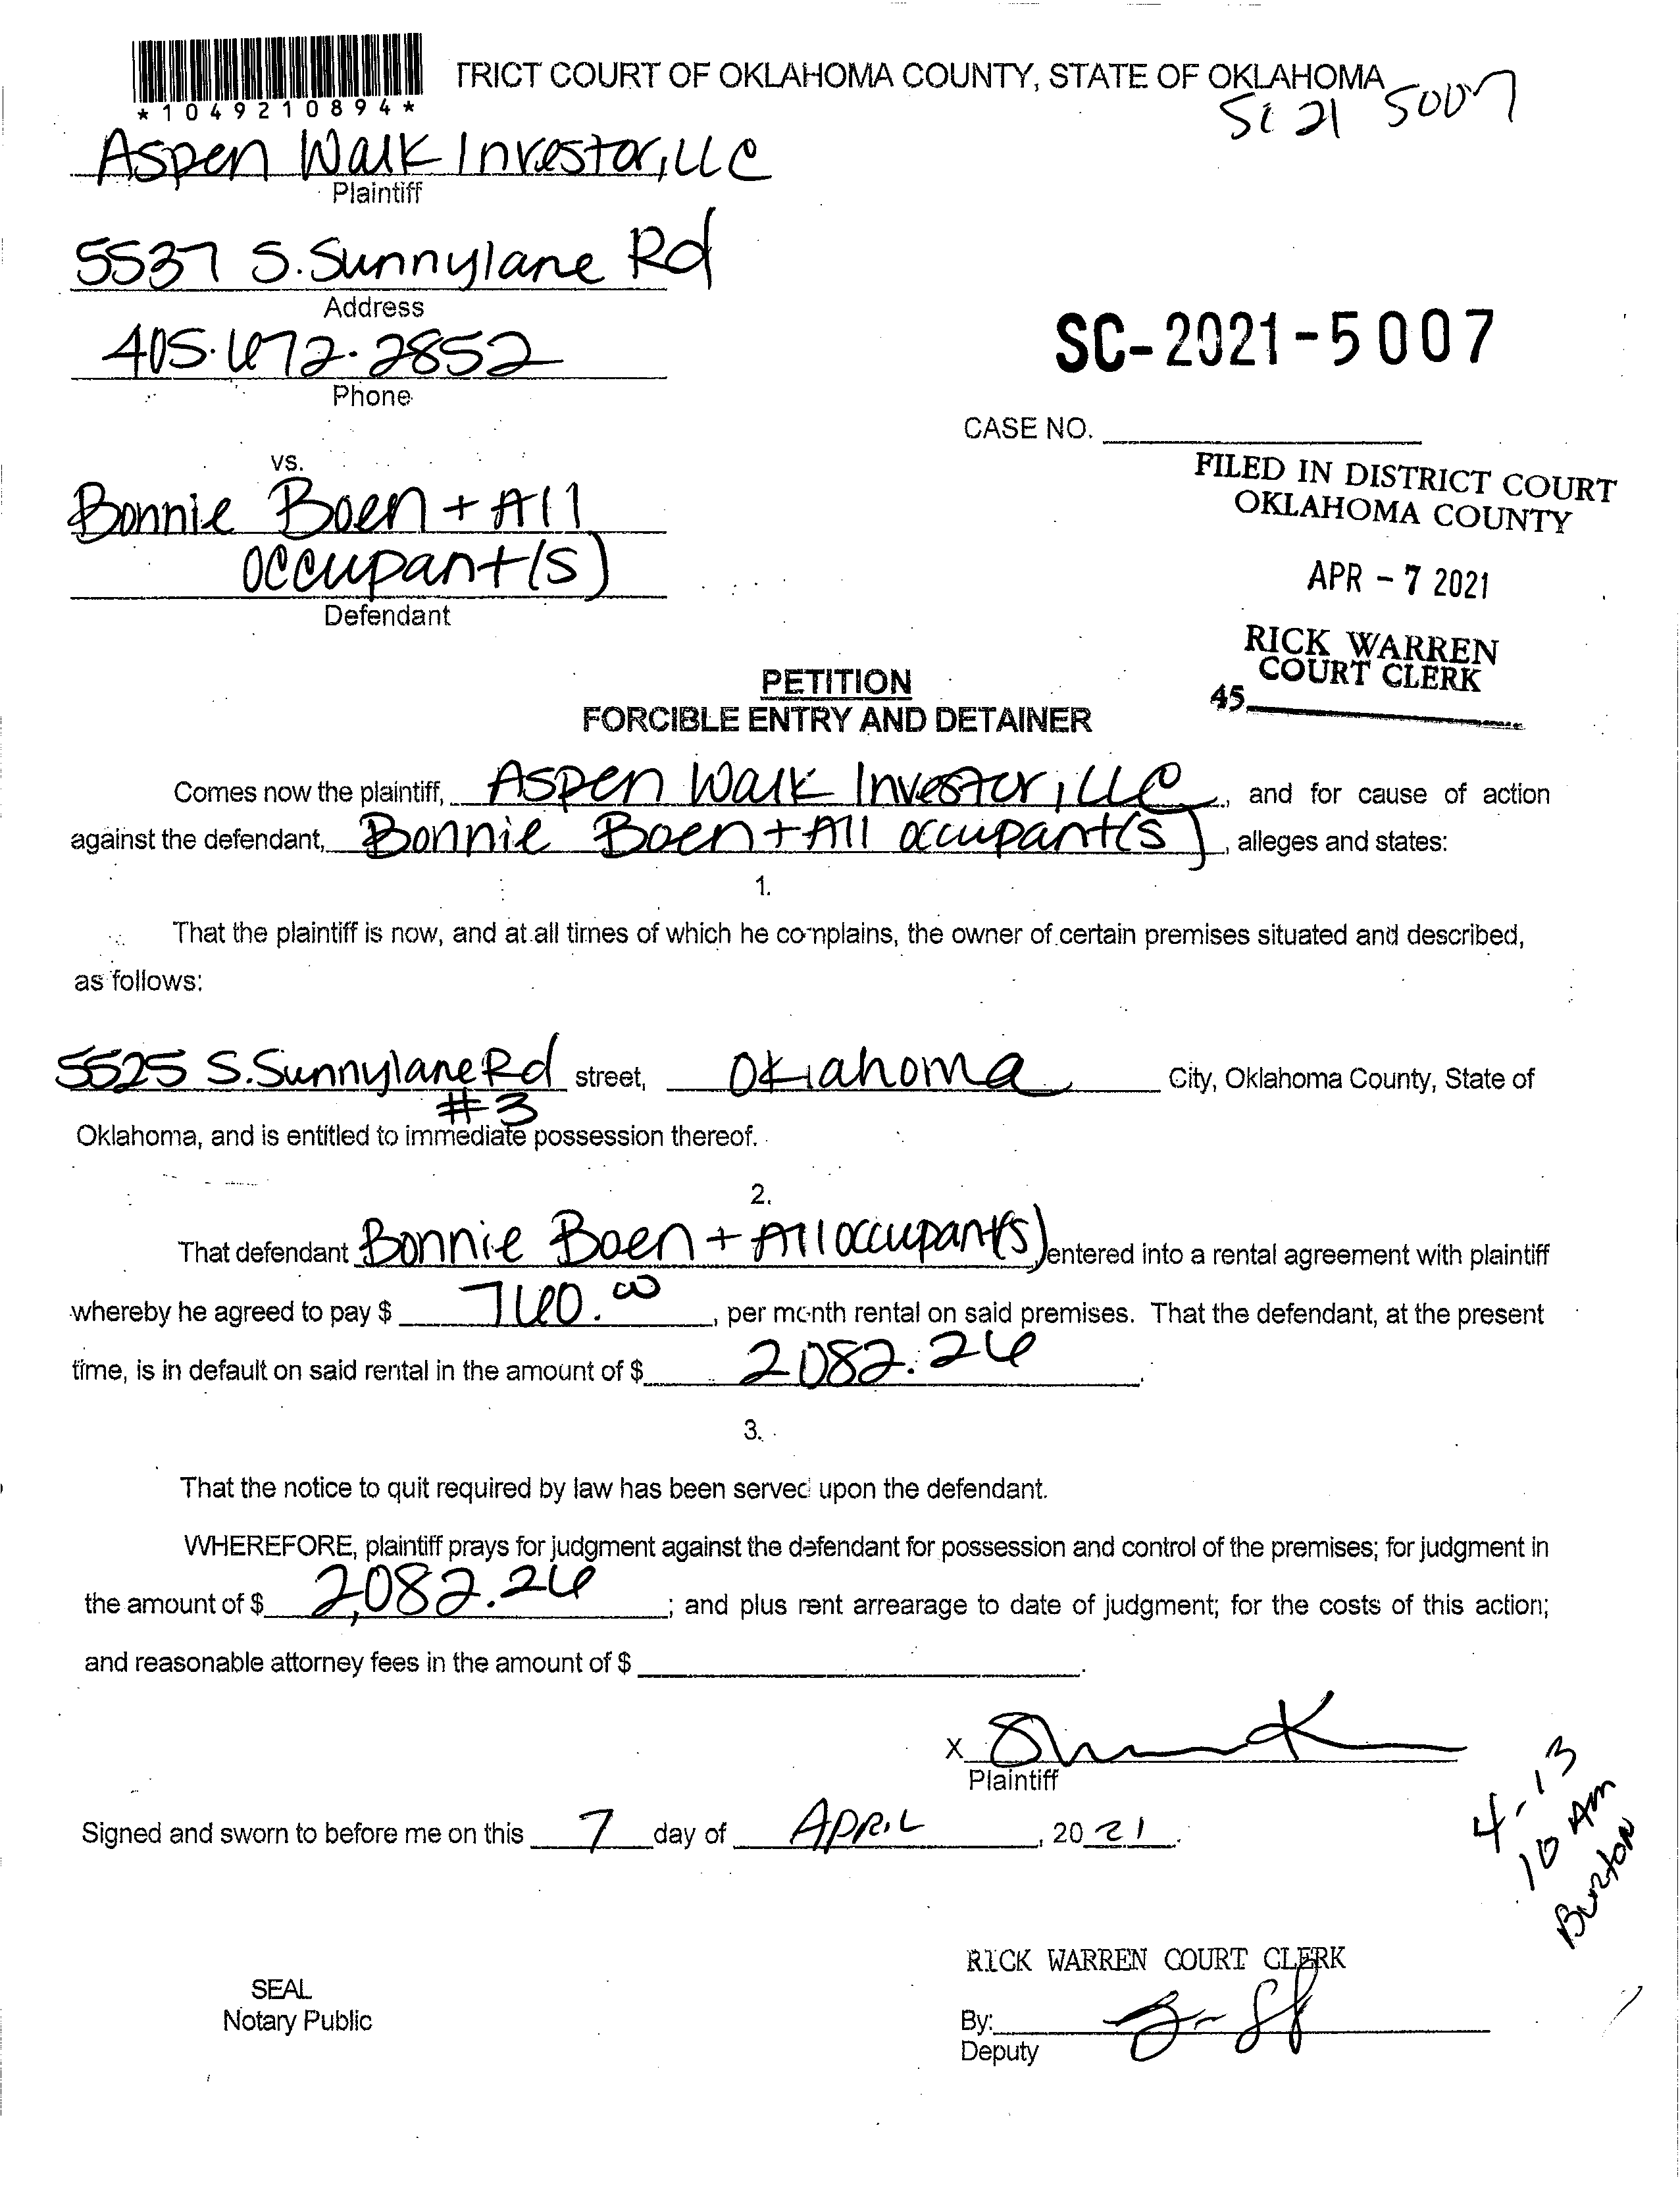 *1049210894*
TRICT COURT OF OKLAHOMA COUNTY, STATE OF OKLAHOMA
SC 21 5007
Aspen Walk Investor, LLC
Plaintiff
5537 S. Sunnylane Rd
Address
405.672.2852
Phone
SC-2021-5007
CASE NO.
vs.
FILED IN DISTRICT COURT
OKLAHOMA COUNTY
Bonnie Boen + All
occupant(s)
Defendant
APR - 7 2021
RICK WARREN
COURT CLERK
45
PETITION
FORCIBLE ENTRY AND DETAINER
Comes now the plaintiff, Aspen Walk Investor, LLC, and for cause of action
against the defendant, Bonnie Boen + All occupant(s), alleges and states:
1.
That the plaintiff is now, and at all times of which he complains, the owner of certain premises situated and described,
as follows:
5525 S. Sunnylane Rd street, Oklahoma City, Oklahoma County, State of
#3
Oklahoma, and is entitled to immediate possession thereof.
2.
That defendant Bonnie Boen + All occupant(s), entered into a rental agreement with plaintiff
whereby he agreed to pay $ 760.00, per month rental on said premises. That the defendant, at the present
time, is in default on said rental in the amount of $ 2082.26.
3.
That the notice to quit required by law has been served upon the defendant.
WHEREFORE, plaintiff prays for judgment against the defendant for possession and control of the premises; for judgment in
the amount of $ 2,082.26; and plus rent arrearage to date of judgment; for the costs of this action;
and reasonable attorney fees in the amount of $ .
X
Plaintiff
Signed and sworn to before me on this 7 day of APRIL, 2021.
4-13
10 AM
Burton
RICK WARREN COURT CLERK
SEAL
Notary Public
By:
Deputy